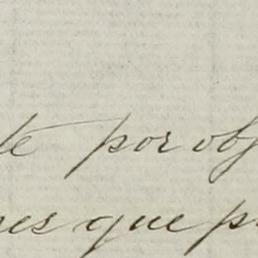 te por obj
nes que p